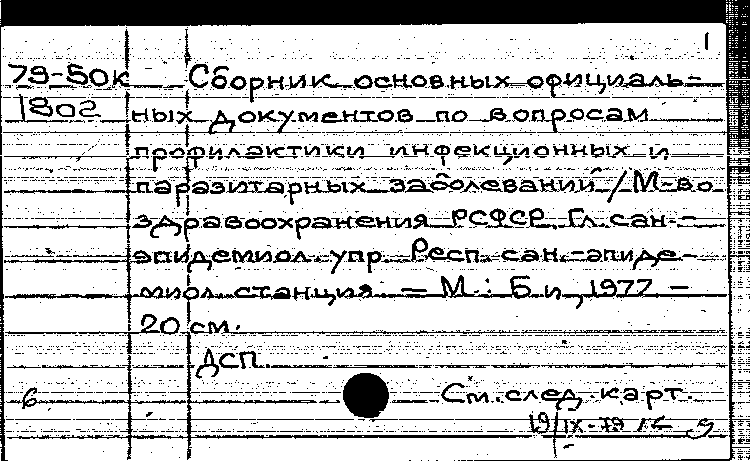 1
79-50к Сборник основных официаль-
1802 ных документов по вопросам
профилактики инфекционных и
паразитарных заболеваний / М-во
здравоохранения РСФСР. Гл. сан.-
эпидемиол. упр. Респ. сан.-эпиде-
миол. станция. — М.: Б. и., 1977. —
20 см.
ДСП
6 См. след. карт.
19/IX-79